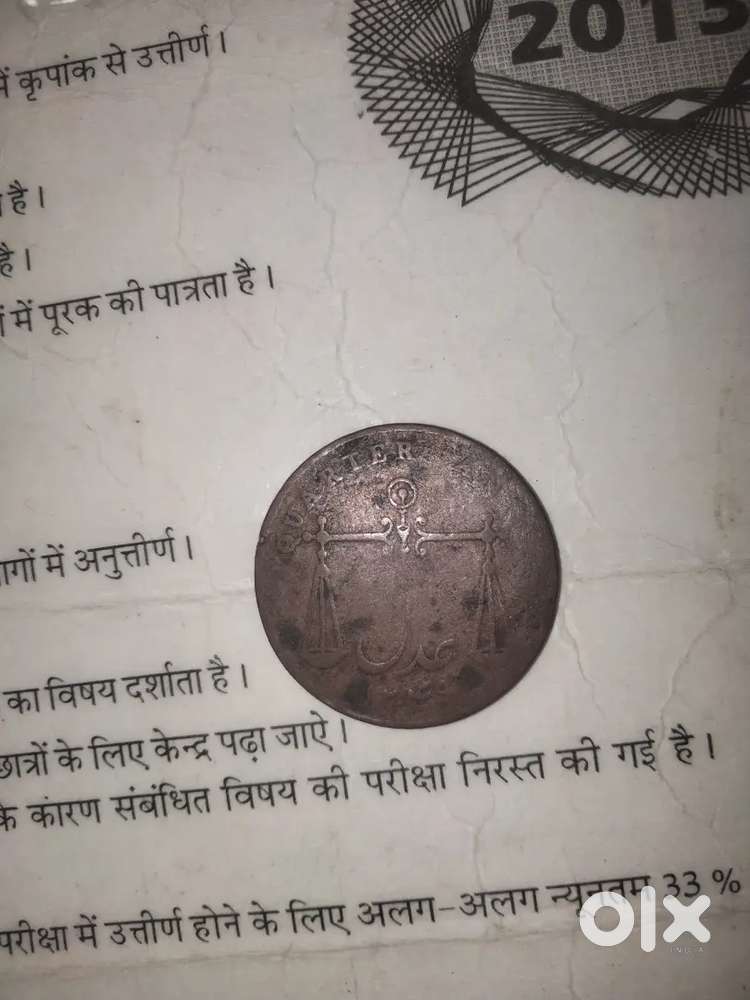 2013
में कृपांक से उत्तीर्ण।
है।
है।
में पूरक की पात्रता है।
QUARTER
عدل
में अनुत्तीर्ण।
का विषय दर्शाता है।
छात्रों के लिए केन्द्र पढ़ा जाऐ।
के कारण संबंधित विषय की परीक्षा निरस्त की गई है।
परीक्षा में उत्तीर्ण होने के लिए अलग-अलग न्यूनतम 33 %
olx
INDIA